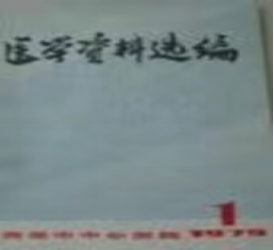 医学资料选编
1
市中心医院 1975